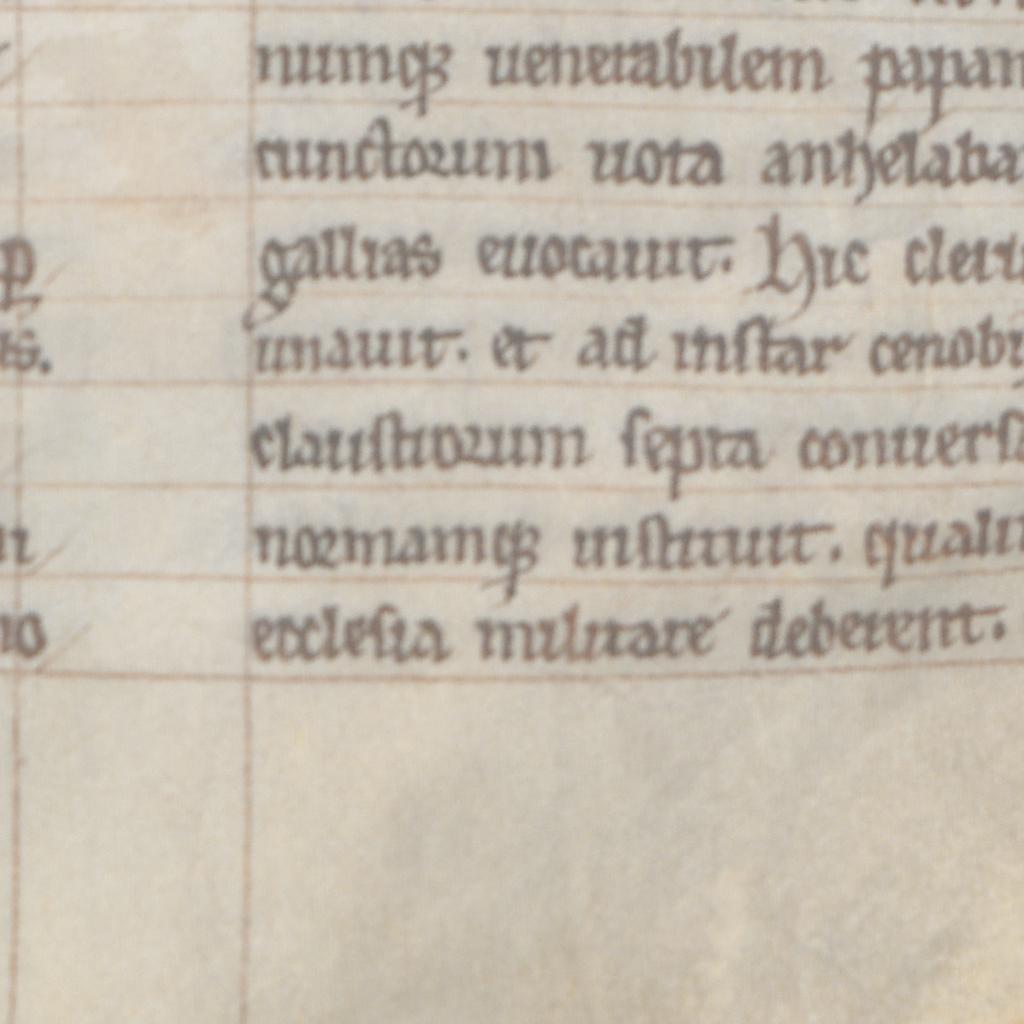 numq; uenerabilem papam
cunctorum uota anhelaba
gallias euocauit. Hic cleri
p
unauit. et ad instar cenobi
is.
claustrorum septa conuersa
normamq; instituit. quali
ecclesia militare deberent.
no